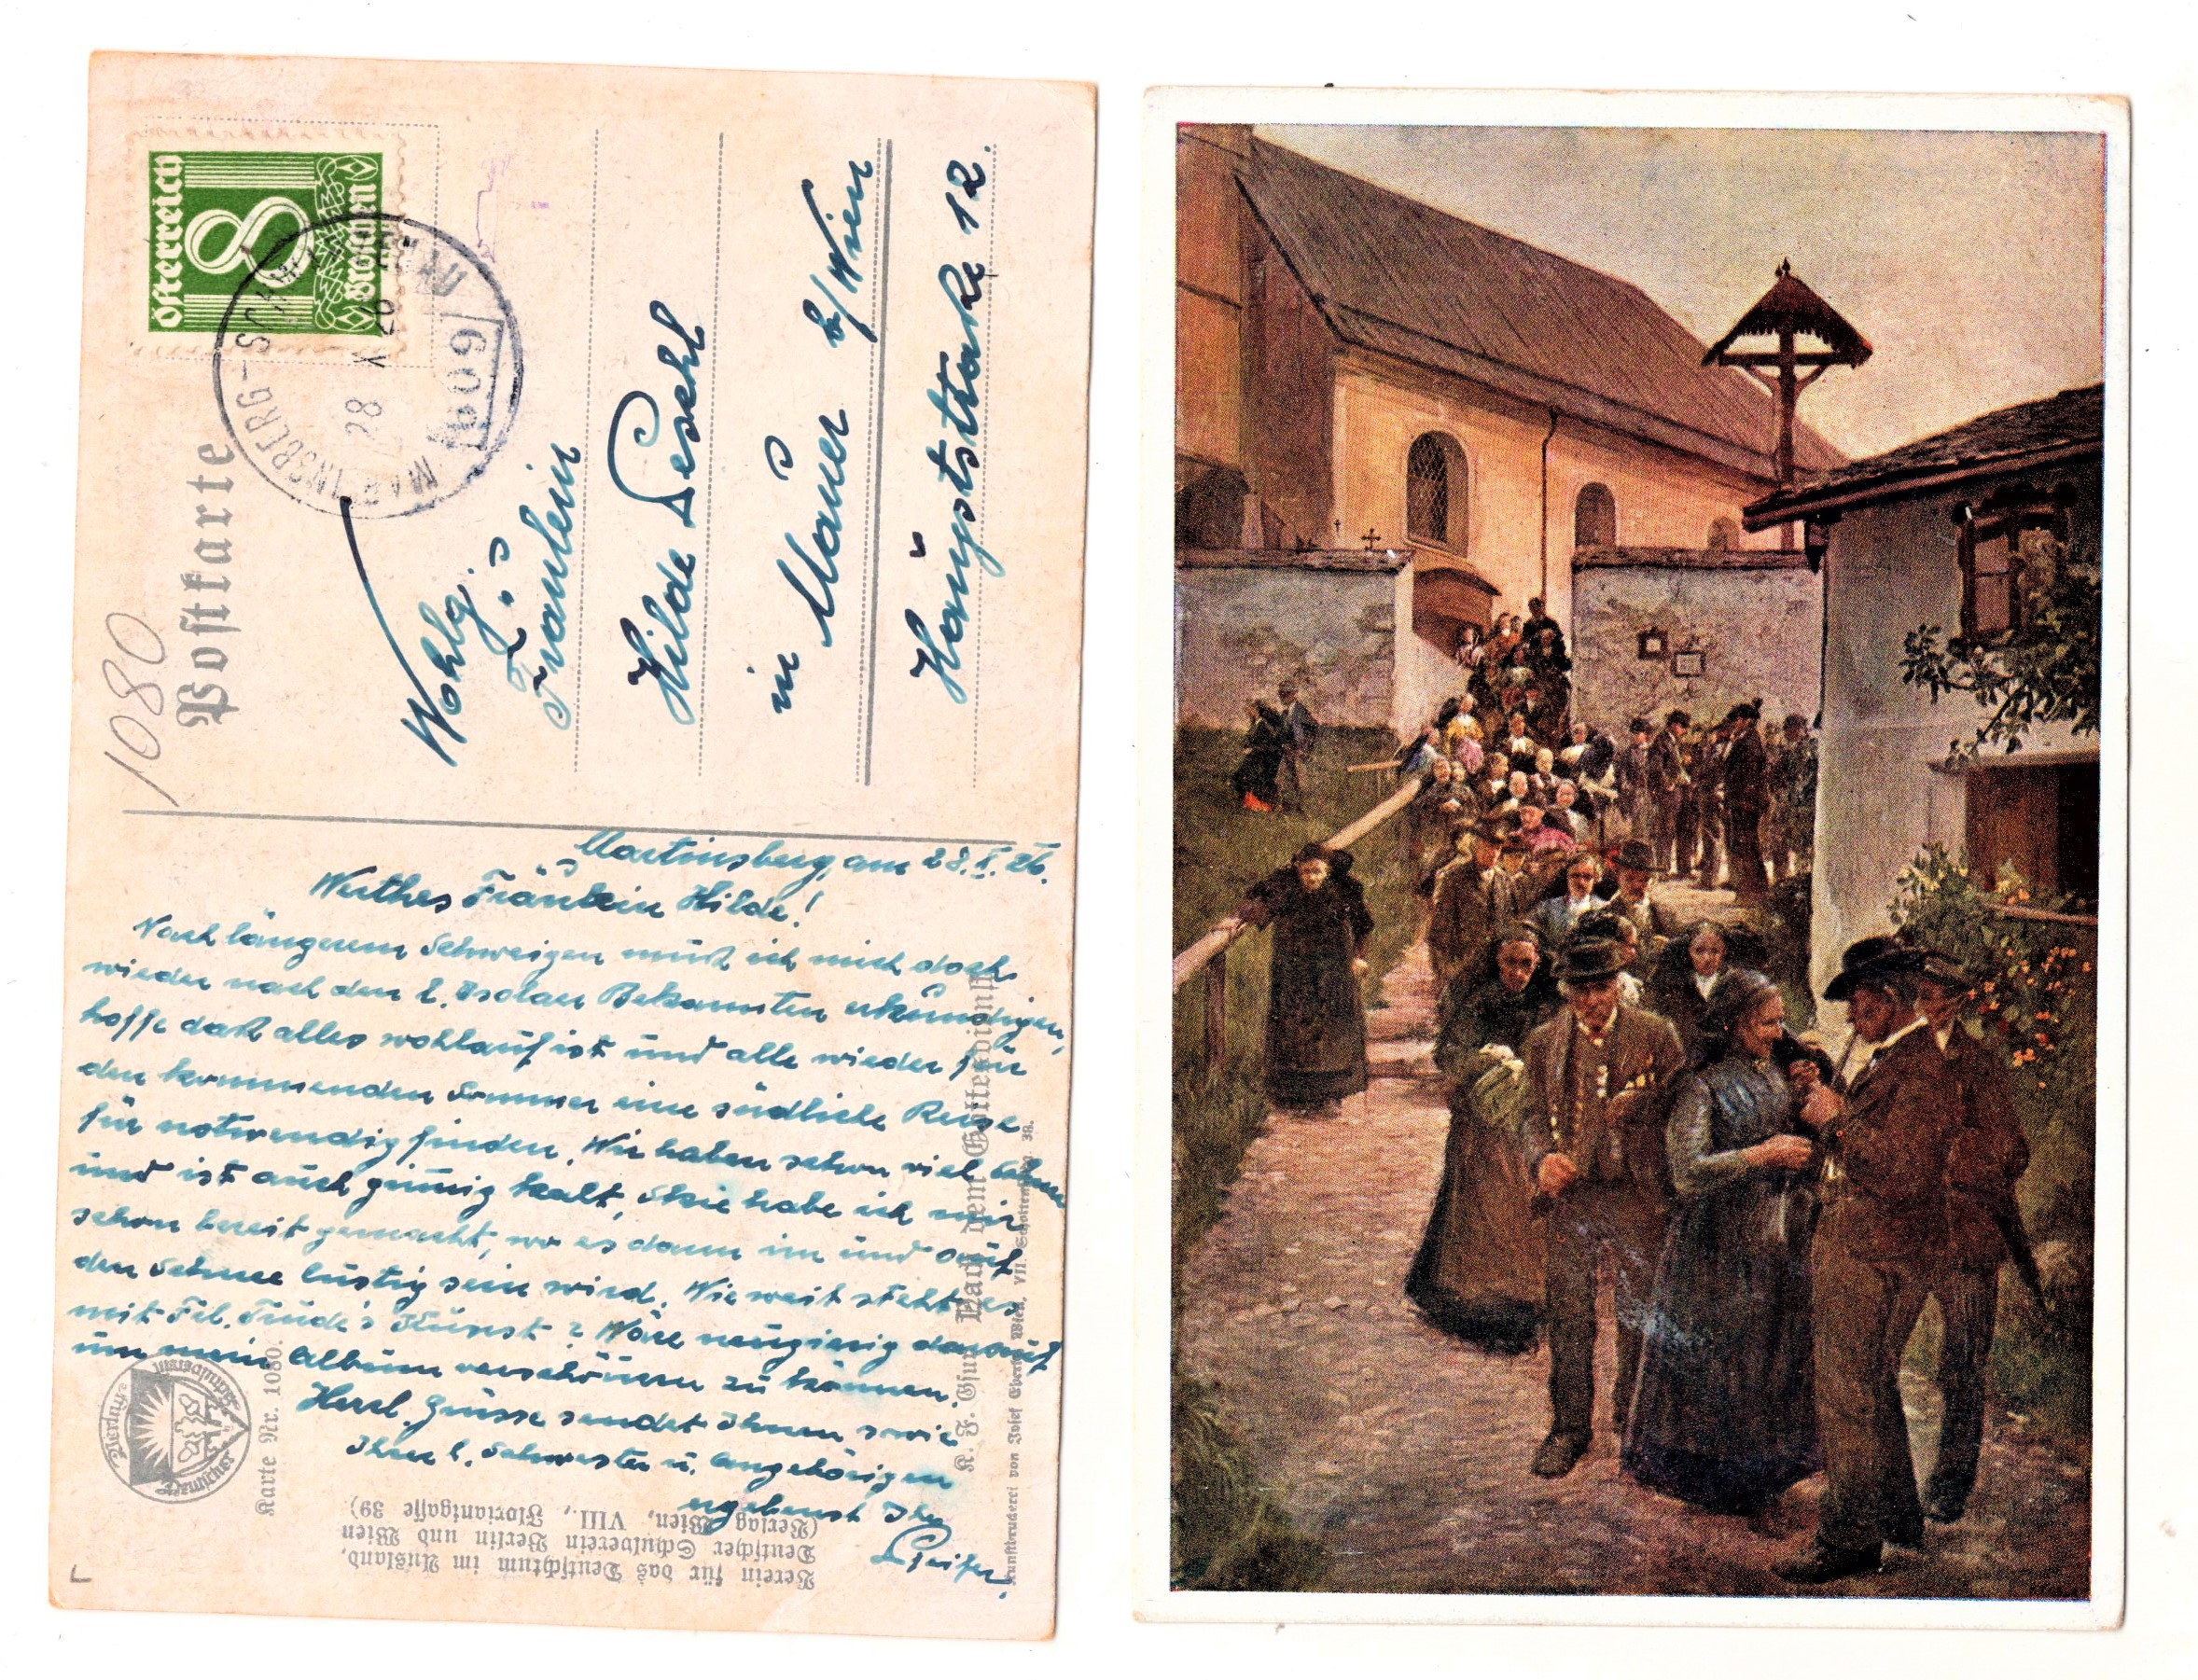 Postkarte
1080
Österreich
8
Groschen
MARTINSBERG-
28 X 26
Wohlg.
Fräulein
Hilde Leschl
in Mauer b/Wien
Hauptstraße 12.
Martinsberg, am 28.X.26.
Werthes Fräulein Hilde!
Nach längerem Schweigen muß ich mich doch
wieder nach den l. Bekannten erkundigen,
hoffe daß alles wohlauf ist und alle wieder für
den kommenden Sommer eine südliche Reise
für notwendig finden. Wir haben schon viel
und ist auch grimig kalt, Skie habe ich mir
schon bereit gemacht, wo es dann im und auf
den Schnee lustig sein wird. Wie weit steht es
mit Frl. Trude's Kunst? Wäre neugierig darauf
um mein Album verschönern zu können.
Herzl. Grüsse sendet Ihnen sowie
Ihrer l. Schwester u. Angehörigen
ergebenst Ihr
Karte Nr. 1080.
Verein für das Deutschtum im Ausland,
Deutscher Schulverein Berlin und Wien
(Verlag Wien, VIII., Florianigasse 39)
K. F. Gsur Nach dem Gottesdienst
Kunstdruckerei von Josef Wien, VII. 38.